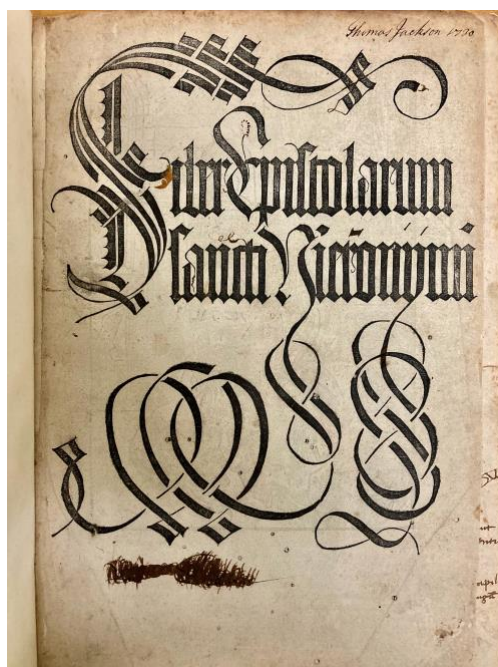 Thomas Jackson 1790
Liber Epistolarum
sancti Hieronymi